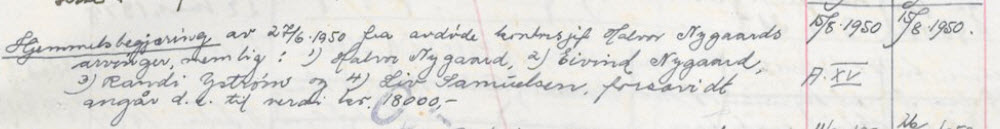 Hjemmelsbegjæring av 27/6-1950 fra avdøde kontorsjef Halvor Nygaards 15/8-1950 15/8-1950.
arvinger, nemlig: 1) Halvor Nygaard, 2) Eivind Nygaard,
3) Randi Yström og 4) Liv Samuelsen, forsåvidt A. XV
angår d.e. til verdi kr. 18000,-